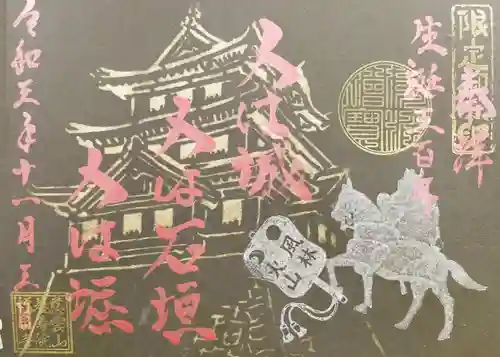 限定
奉拝
生誕五百年
人は城
人は石垣
人は堀
風林
火山
令和元年十一月三